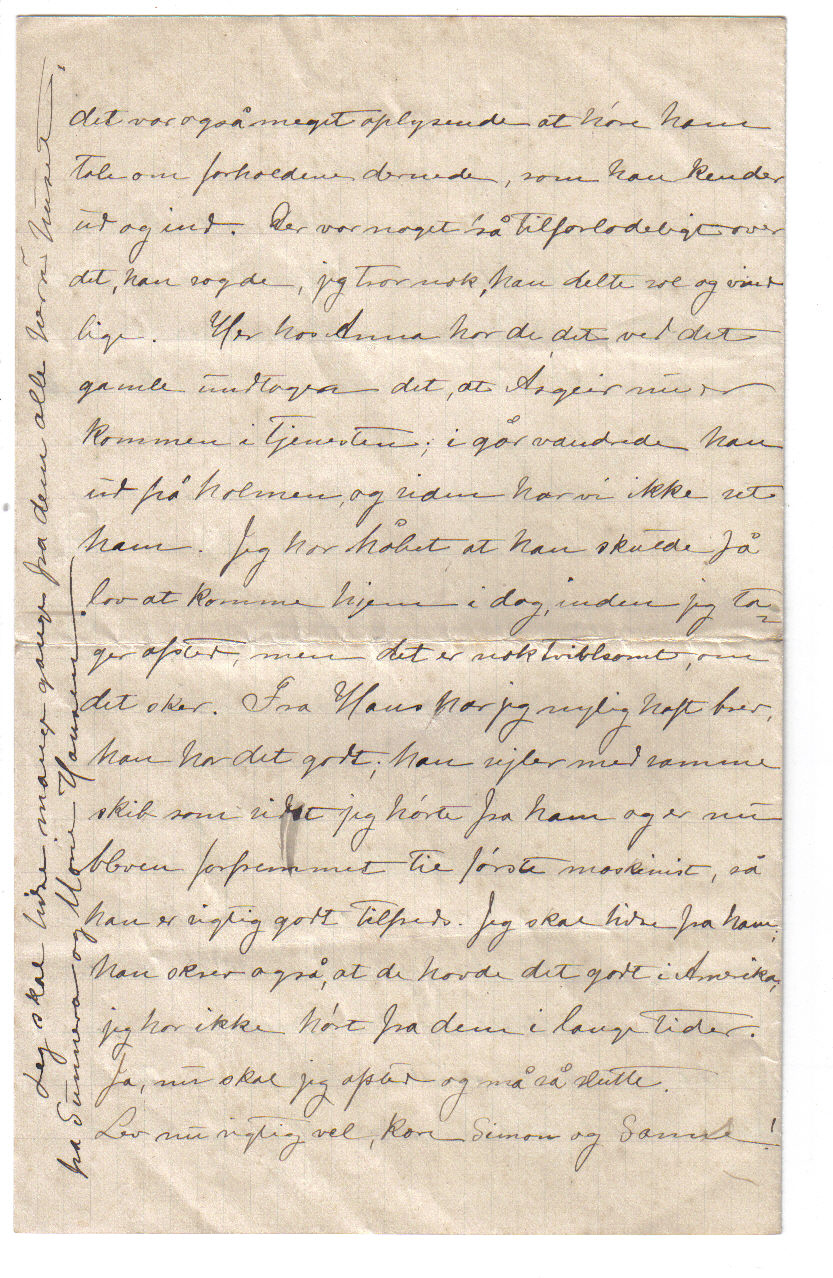 det var også meget oplysende at höre ham
tale om forholdene dernede, som han kender
ud og ind. Der var noget så tilforladeligt over
det, han sagde, jeg tror nok, han delte sol og vind
lige. Her hos Anna har de det ved det
gamle undtagen det, at Asgeir nu er
kommen i tjenesten; i går vandrede han
ud på holmen, og siden har vi ikke set
ham. Jeg har håbet at han skulde få
lov at komme hjem i dag, inden jeg ta=
ger afsted, men det er nok tvivlsomt, om
det sker. Fra Hans har jeg nylig haft brev,
han har det godt; han sejler med samme
skib som sidst jeg hörte fra ham og er nu
bleven forfremmet til förste maskinist, så
han er rigtig godt tilfreds. Jeg skal hilse fra ham;
han skrev også, at de havde det godt i Amerika,
jeg har ikke hört fra dem i lange tider.
Ja, nu skal jeg afsted og må så slutte.
Lev nu rigtig vel, kære Simon og Sanne!
Jeg skal hilse mange gange fra dem alle her i huset,
fra Gunnera og Marie Hansen.